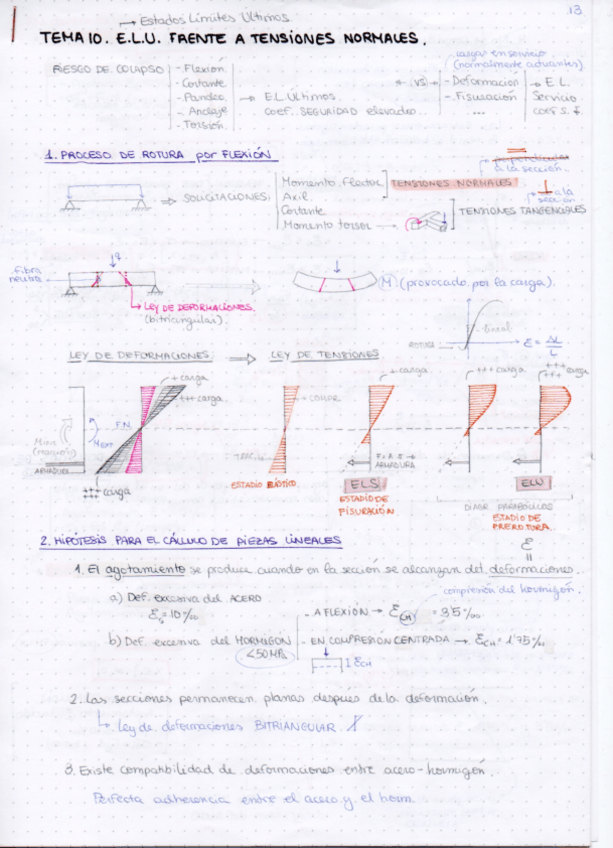 → Estados Límites Últimos.
13
TEMA 10. E.L.U. FRENTE A TENSIONES NORMALES.
cargas en servicio
(normalmente actuantes).
RIESGO DE COLAPSO
- Flexión
- Cortante
- Pandeo
- Anclaje
- Torsión
→ E.L. Últimos
coef. SEGURIDAD elevados..
VS
- Deformación
- Fisuración
...
→ E.L.
Servicio
coef S. ↓
1. PROCESO DE ROTURA por FLEXIÓN
⇒ SOLICITACIONES:
Momento flector
Axil
Cortante
Momento torsor →
TENSIONES NORMALES
perpendicular
a la sección.
⊥ a la
sección
TENSIONES TANGENCIALES
fibra
neutra
q
LEY DE DEFORMACIONES.
(bitriangular).
M (provocado por la carga).
lineal
ROTURA
ε = ΔL/L
LEY DE DEFORMACIONES ⇒ LEY DE TENSIONES
+ carga
+++ carga
F.N.
Mint
(reacción)
Mext
ARMADURA
+++ carga
+ COMPR.
TRACC.
ESTADIO ELÁSTICO
+ carga
ARMADURA
ELS
ESTADIO DE
FISURACIÓN
+++ carga
+++
+++ carga
ELU
DIAGR. PARABÓLICOS
ESTADIO DE
PREROTURA.
2. HIPÓTESIS PARA EL CÁLCULO DE PIEZAS LINEALES
ε
=
1. El agotamiento se produce cuando en la sección se alcanzan det. deformaciones.
compresión del hormigón.
a) Def. excesiva del ACERO
εs = 10 ‰
b) Def. excesiva del HORMIGÓN
<50 MPa
- A FLEXIÓN → εCH = 3'5 ‰
- EN COMPRESIÓN CENTRADA → εCH = 1'75 ‰
εCH
2. Las secciones permanecen planas después de la deformación.
↳ Ley de deformaciones BITRIANGULAR
3. Existe compatibilidad de deformaciones entre acero-hormigón.
Perfecta adherencia entre el acero y el horm.